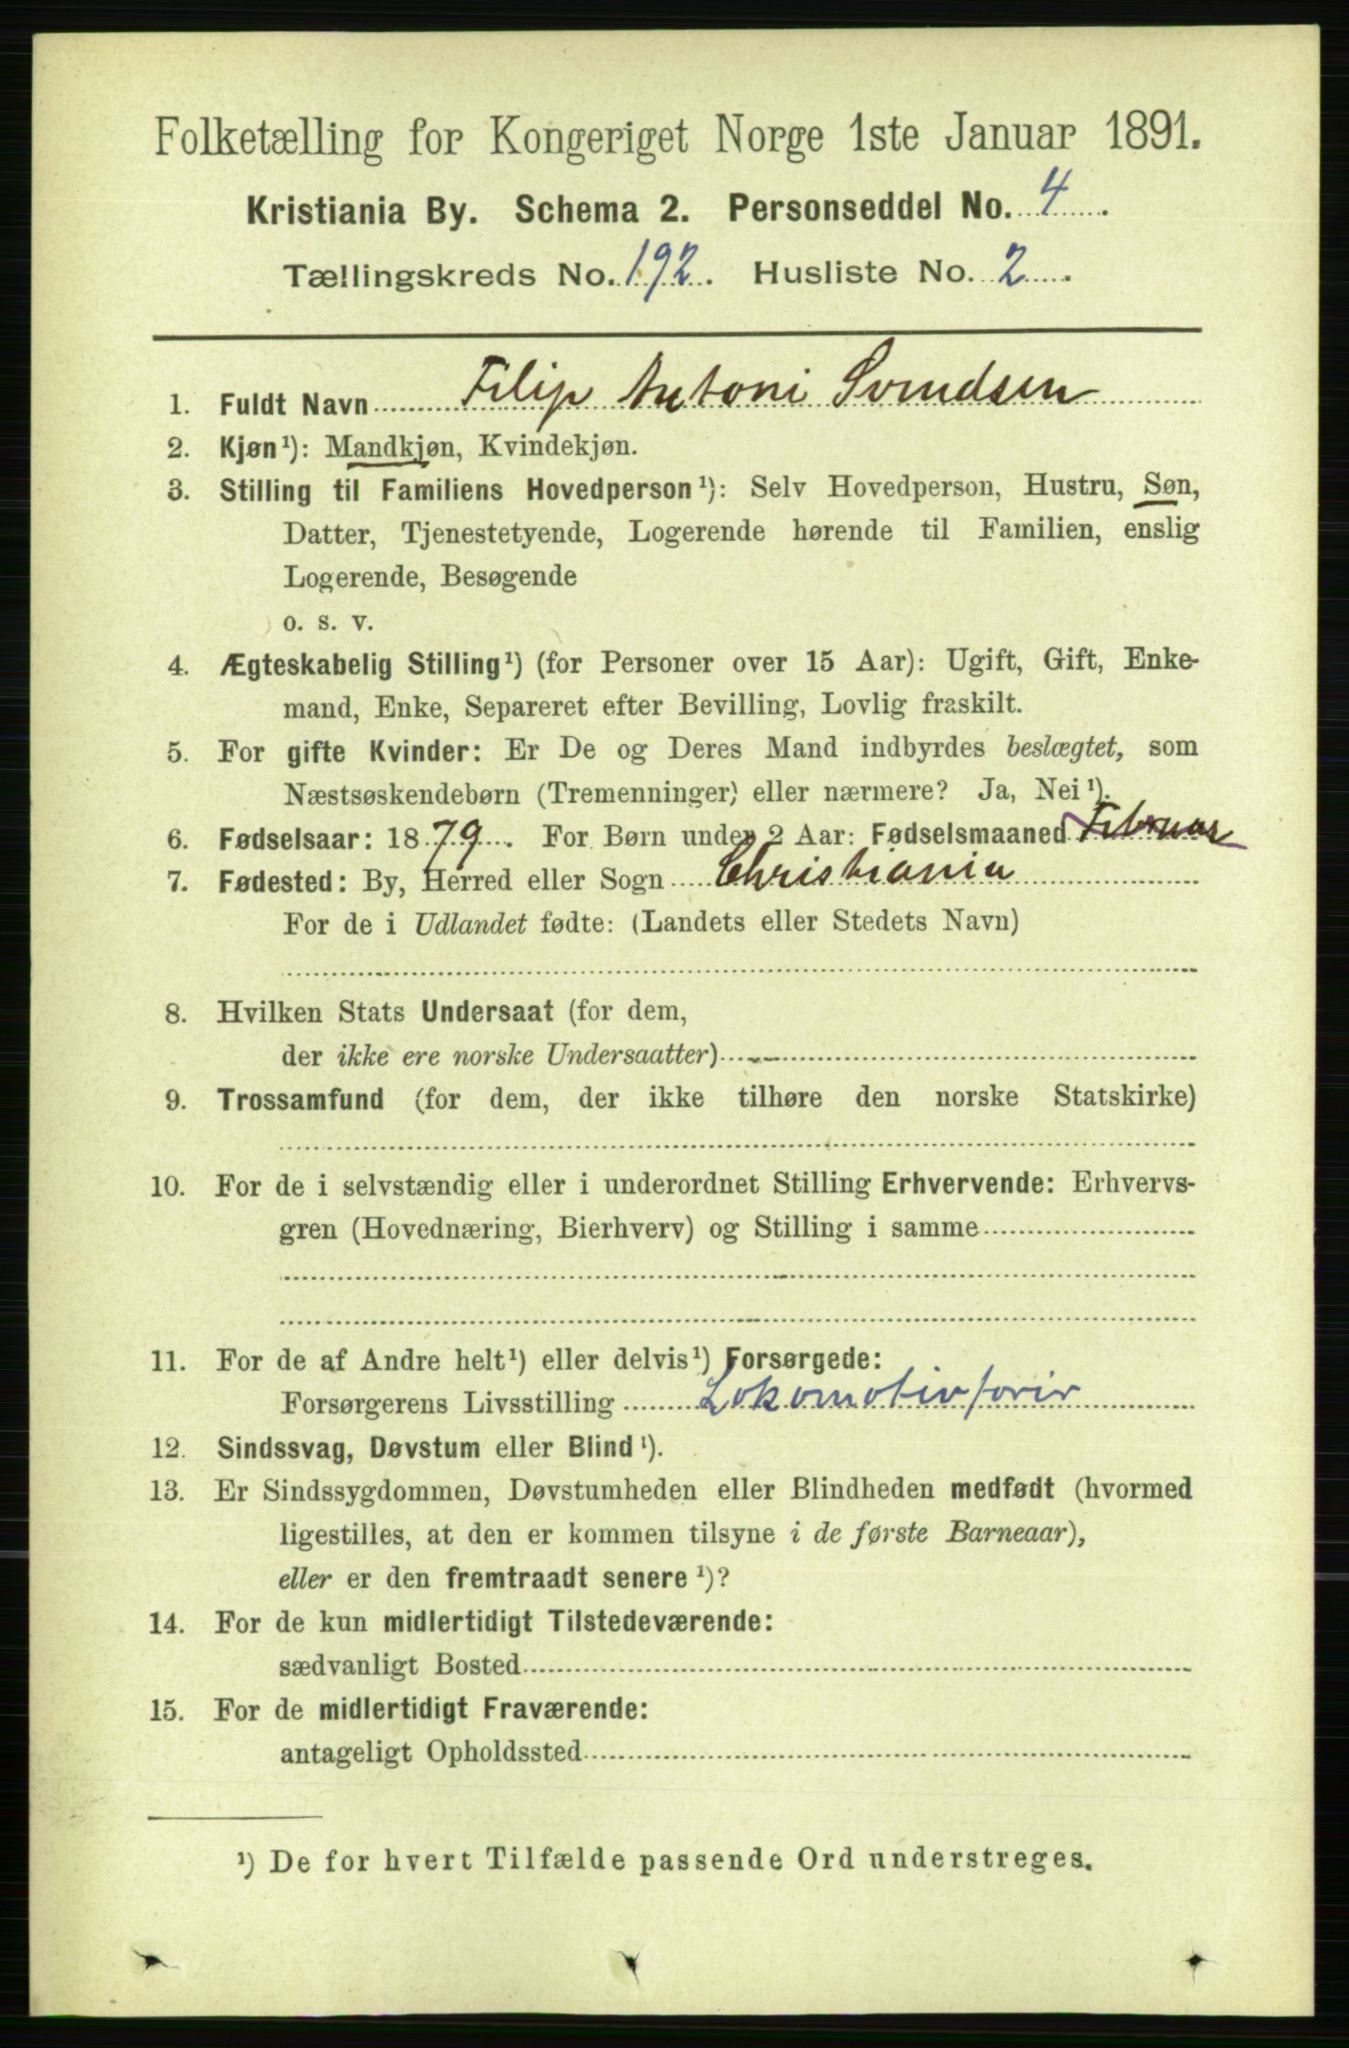 Folketælling for Kongeriget Norge 1ste Januar 1891.
Kristiania By. Schema 2. Personseddel No. 4
Tællingskreds No. 192. Husliste No. 2
1. Fuldt Navn Filip Antoni Svendsen
2. Kjøn¹): Mandkjøn, Kvindekjøn.
3. Stilling til Familiens Hovedperson¹): Selv Hovedperson, Hustru, Søn,
Datter, Tjenestetyende, Logerende hørende til Familien, enslig
Logerende, Besøgende
o. s. v.
4. Ægteskabelig Stilling¹) (for Personer over 15 Aar): Ugift, Gift, Enke-
mand, Enke, Separeret efter Bevilling, Lovlig fraskilt.
5. For gifte Kvinder: Er De og Deres Mand indbyrdes beslægtet, som
Næstsøskendebørn (Tremenninger) eller nærmere? Ja, Nei¹).
6. Fødselsaar: 1879. For Børn under 2 Aar: Fødselsmaaned Februar
7. Fødested: By, Herred eller Sogn Christiania
For de i Udlandet fødte: (Landets eller Stedets Navn)
8. Hvilken Stats Undersaat (for dem,
der ikke ere norske Undersaatter)
9. Trossamfund (for dem, der ikke tilhøre den norske Statskirke)
10. For de i selvstændig eller i underordnet Stilling Erhvervende: Erhvervs-
gren (Hovednæring, Bierhverv) og Stilling i samme
11. For de af Andre helt¹) eller delvis¹) Forsørgede:
Forsørgerens Livsstilling Lokomotivforir
12. Sindssvag, Døvstum eller Blind¹).
13. Er Sindssygdommen, Døvstumheden eller Blindheden medfødt (hvormed
ligestilles, at den er kommen tilsyne i de første Barneaar),
eller er den fremtraadt senere¹)?
14. For de kun midlertidigt Tilstedeværende:
sædvanligt Bosted
15. For de midlertidigt Fraværende:
antageligt Opholdssted
¹) De for hvert Tilfælde passende Ord understreges.